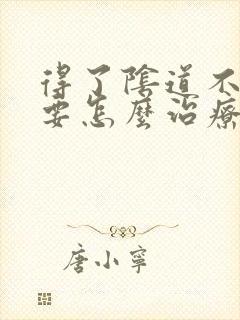 得了陰道不
要怎麼治療
唐小寧